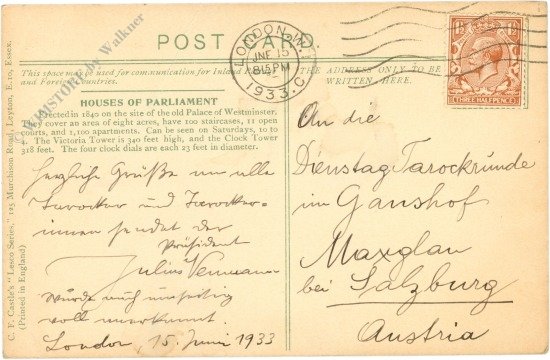 POST CARD
LONDON. W.C.
JNE 15
8.15 PM
1933
THREE HALF PENCE
This space may be used for communication for Inland P
and Foreign Countries.
THE ADDRESS ONLY TO BE
WRITTEN HERE.
HOUSES OF PARLIAMENT
Erected in 1840 on the site of the old Palace of Westminster.
They cover an area of eight acres, have 100 staircases, 11 open
courts, and 1,100 apartments. Can be seen on Saturdays, 10 to
4. The Victoria Tower is 340 feet high, and the Clock Tower
318 feet. The four clock dials are each 23 feet in diameter.
Herzliche Grüße an alle
Tarocker und Tarocker-
innen sendet der
Präsident
Julius
Würde mich
voll
London, 15. Juni 1933
An die
Dienstag Tarockrunde
im Ganshof
Maxglan
bei Salzburg
Austria
C. F. Castle's "Lesco Series," 125 Murchison Road, Leyton, E.10, Essex.
(Printed in England)
PHILHISTORY by Walkner